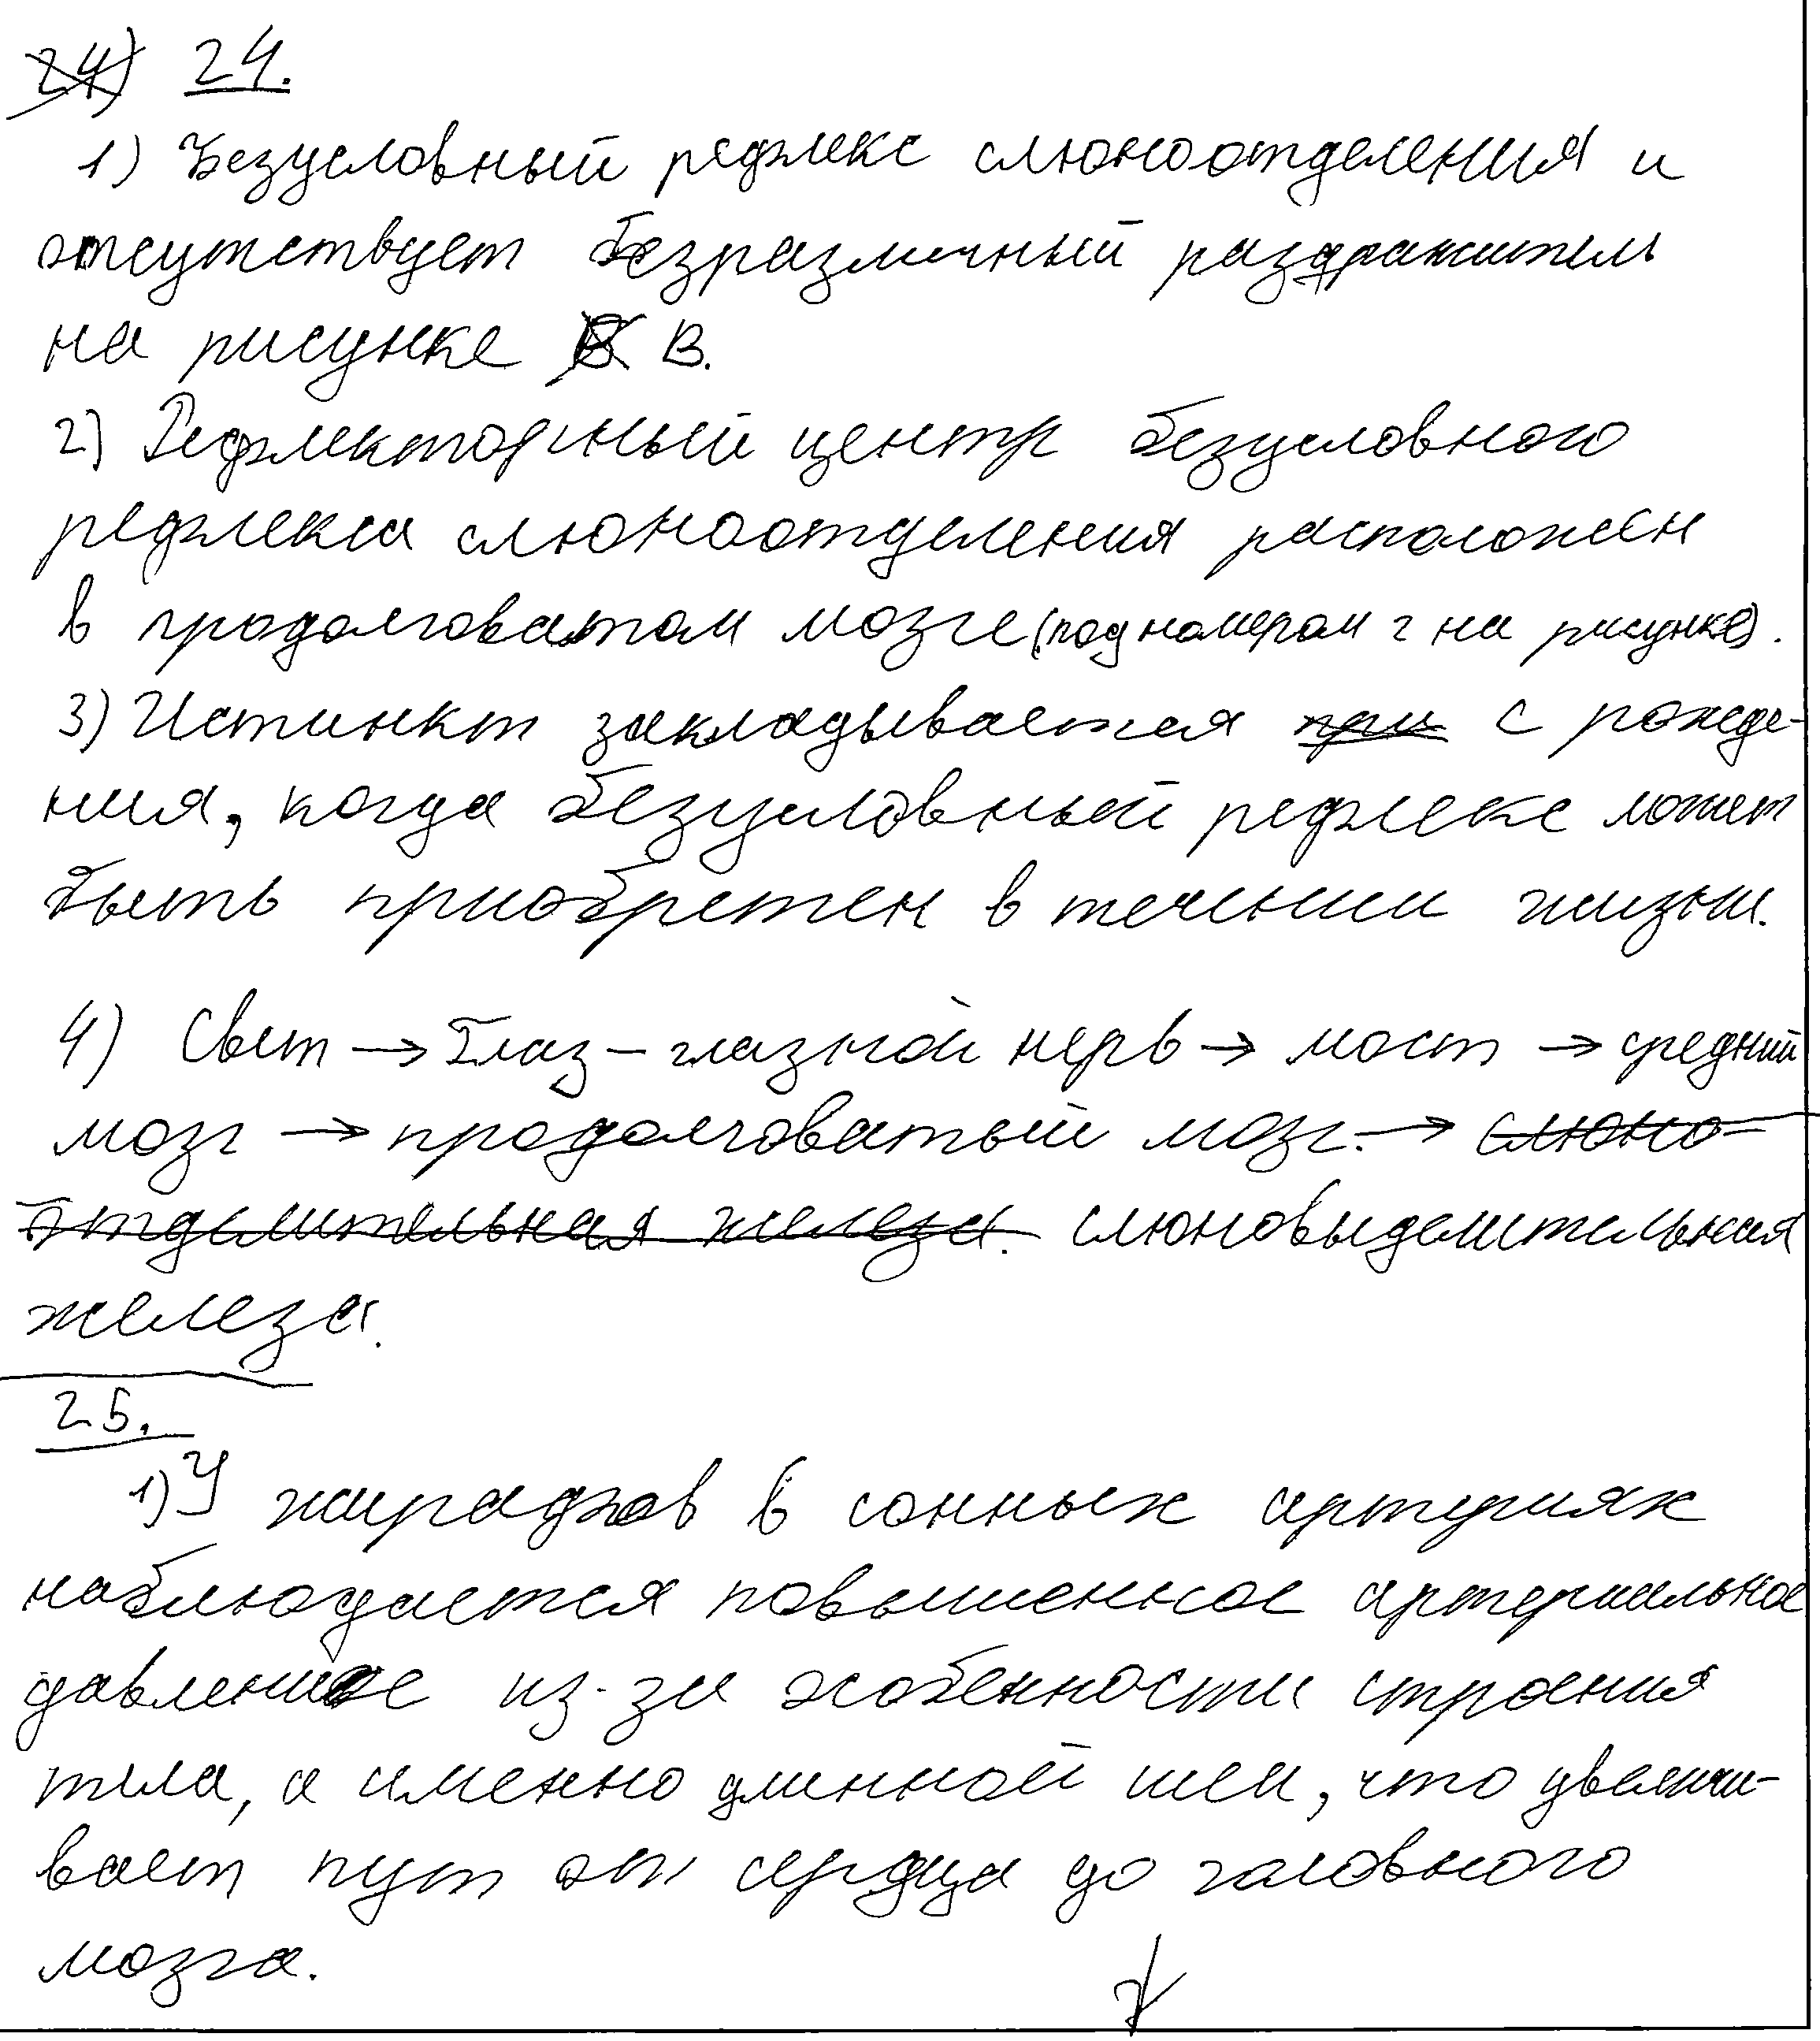 24) 24.
1) Безусловный рефлекс слюноотделения и
отсутствует безразличный раздражитель
на рисунке В В.
2) Рефлекторный центр безусловного
рефлекса слюноотделения расположен
в продолговатом мозге (под номером 2 на рисунке).
3) Истинкт закладывается при с рожде-
ния, когда безусловный рефлекс может
быть приобретен в течении жизни.
4) Свет → Глаз – глазной нерв → мост → средний
мозг → продолговатый мозг. → слюно-
отделительная железа. слюновыделительная
железа.
25.
1) У жирафов в сонных артериях
наблюдается повышенное артериальное
давление из-за особенности строения
тела, а именно длинной шеи, что увеличи-
вает пут от сердца до головного
мозга.